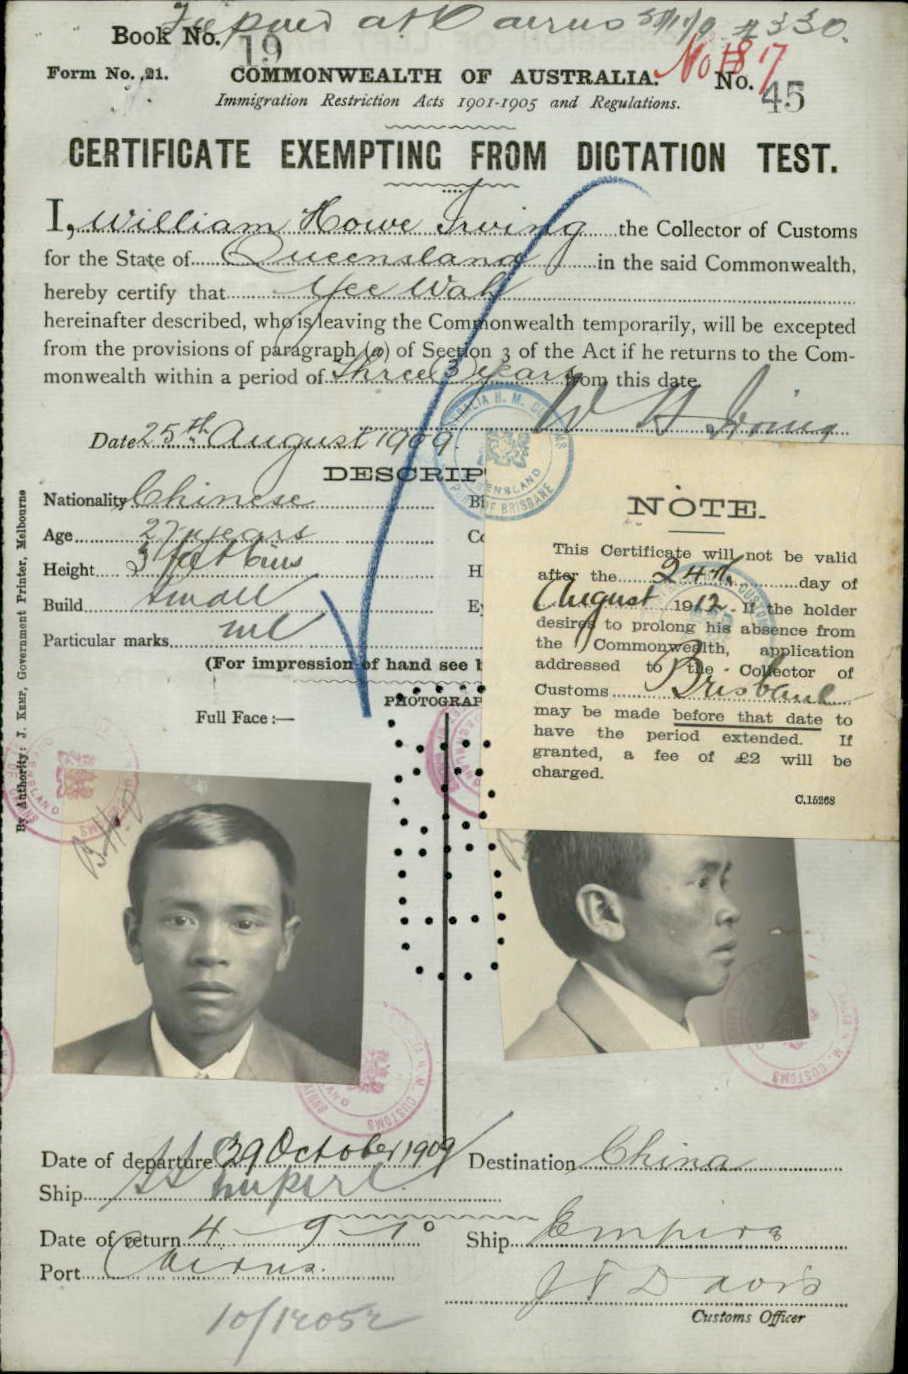 at Cairns
Book No. 19
No 187
Form No. 21.
COMMONWEALTH OF AUSTRALIA.
No. 45
Immigration Restriction Acts 1901-1905 and Regulations.
CERTIFICATE EXEMPTING FROM DICTATION TEST.
I, William Howe Irving the Collector of Customs
for the State of Queensland in the said Commonwealth,
hereby certify that Yee Wah
hereinafter described, who is leaving the Commonwealth temporarily, will be excepted
from the provisions of paragraph (a) of Section 3 of the Act if he returns to the Com-
monwealth within a period of three 3 years from this date.
W H Irving
Date 25th August 1909
DESCRIP
Nationality Chinese
Age 27 years
Height
Build Small
Particular marks nil
(For impression of hand see b
PHOTOGRAP
Full Face:—
By Authority: J. KEMP, Government Printer, Melbourne
NOTE.
This Certificate will not be valid
after the 24th day of
August 1912. If the holder
desires to prolong his absence from
the Commonwealth, application
addressed to the Collector of
Customs Brisbane
may be made before that date to
have the period extended. If
granted, a fee of £2 will be
charged.
C.15268
Date of departure 29 October 1909
Destination China
Ship SS Empire
Date of return 4-9-10
Ship Empire
Port Cairns.
J F Davis
Customs Officer
10/12052